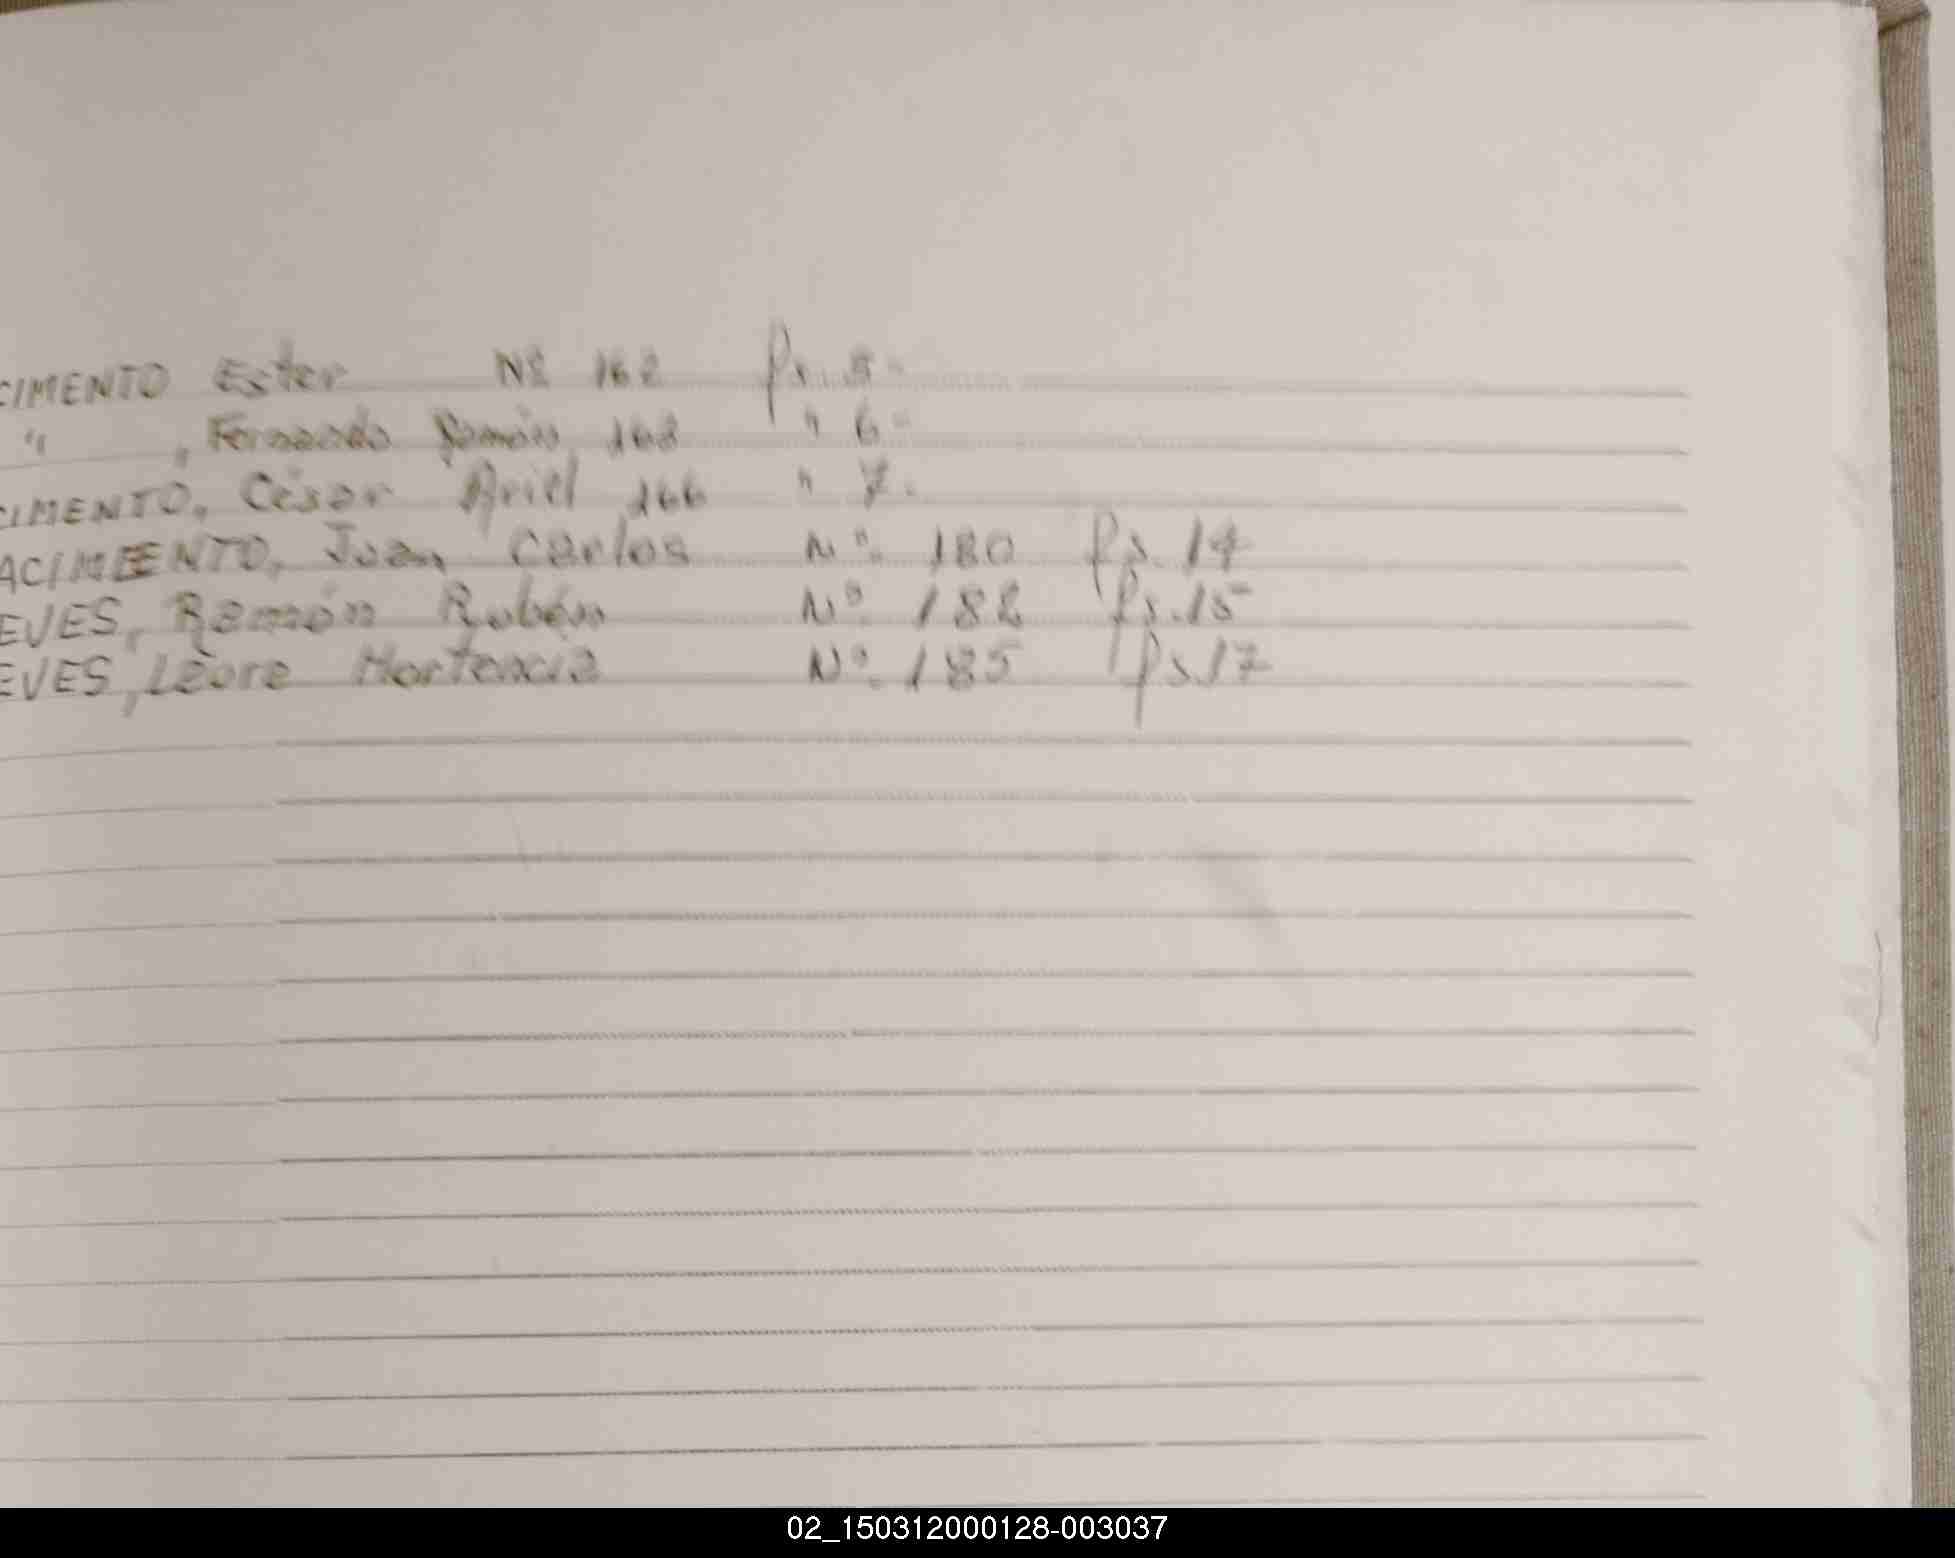 CIMENTO Ester Nº 162 fs. 5-
" , Fernando Ramón, 163 " 6-
CIMENTO, César Ariel 166 " 7.
ACIMIENTO, Juan Carlos Nº. 180 fs. 14
EVES, Ramón Rubén Nº. 182 fs. 15
EVES, Leore Hortencia Nº. 185 fs 17
02_150312000128-003037